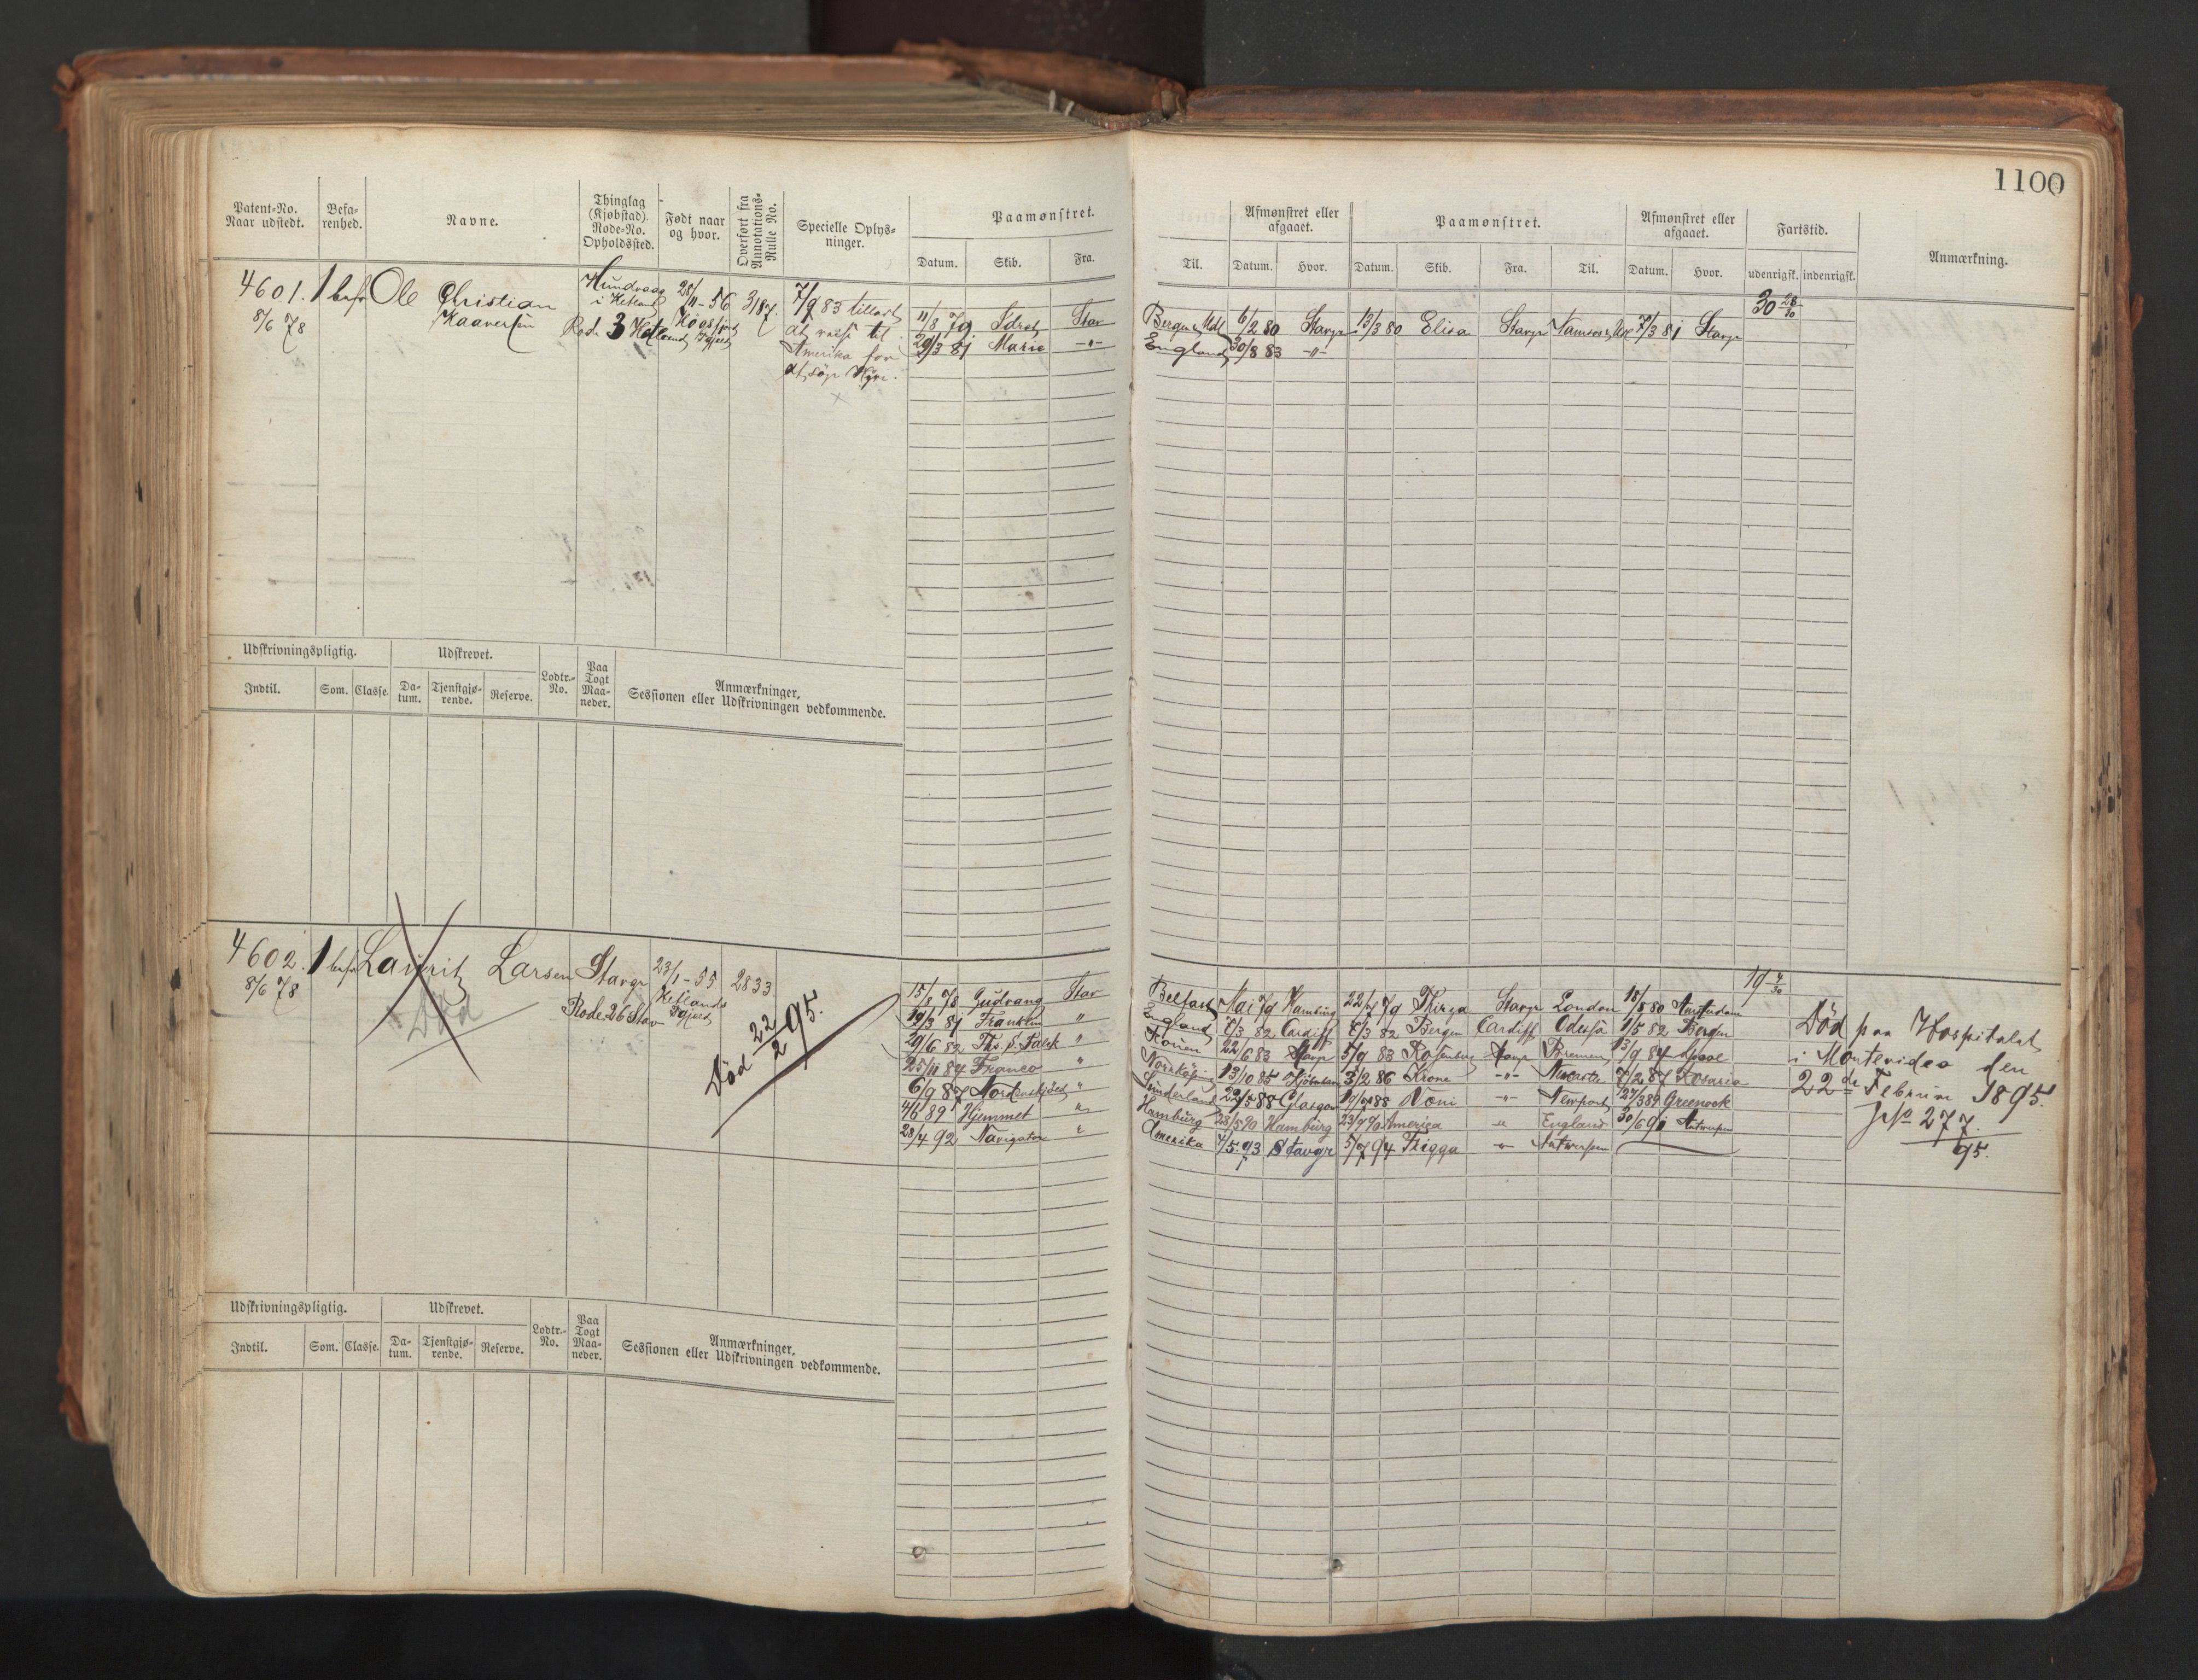 1100
Patent-No. Naar udstedt.
Befarenhed.
Navne.
Thinglag (Kjøbstad). Rode-No. Opholdssted.
Født naar og hvor.
Overført fra Annotations-Rulle No.
Specielle Oplysninger.
Paamønstret.
Datum. Skib. Fra.
Til.
Afmønstret eller afgaaet.
Datum. Hvor.
Paamønstret.
Datum. Skib. Fra. Til.
Afmønstret eller afgaaet.
Datum. Hvor.
Fartstid.
udenrigsk. indenrigsk.
Anmærkning.
4601. 1 bef Ole Christian
8/6 78 Kaaversen
Hundvaag
i Hetland
Rode 3 Hetland
28/11-56
3187.
7/9 83 tilladt
at reise til
Amerika for
at søge Hyre.
30 28/30
11/8 79 Idræt Stav Bergen 6/2 80 Stavgr 13/3 80 Elisa Stavgr Namsos 7/3 81 Stavgr
29/3 81 Marie -"- England 30/8 83 -"-
Udskrivningspligtig.
Udskrevet.
Lodtr.-No.
Paa Togt Maaneder.
Anmærkninger,
Sessionen eller Udskrivningen vedkommende.
Indtil. Som. Classe. Datum. Tjenstgjørende. Reserve.
4602. 1 bef Lauritz Larsen Stavgr 23/1-55 2833
8/6 78 Død Rode 26 Stav Hetlands
Død 22/2 95.
19 4/30
15/8 78 Gudvang Stav Belfast Mai 79 Hamburg 22/7 79 Thirza Stavgr London 18/5 80 Amsterdam
19/3 81 Franklin " England 7/3 82 Cardiff 8/3 82 Bergen Cardiff Odessa 1/5 82 Bergen
29/6 82 Ths. S. Falck " 22/6 83 Stavgr 5/9 83 Rosenberg Stavgr Bremen 13/9 84
25/11 84 Franco " Norrköping 13/10 85 3/2 86 Krone -"- Newcastle 7/2 87 Rosario
6/9 87 Nordenskjöld " Sunderland 22/5 88 Glasgow Noni -"- Newport 27/3 89 Greenock
4/6 89 Hjemmet " Hamburg 28/5 90 Hamburg 23/7 90 America " England 30/6 91 Antwerpen
28/4 92 Navigator " Amerika 4/5 93 Stavgr 5/7 94 Frigga " Antwerpen
Død paa Hospitalet
i Montevideo den
22de Februar 1895.
JNo 277
95.
Udskrivningspligtig.
Udskrevet.
Lodtr.-No.
Paa Togt Maaneder.
Anmærkninger,
Sessionen eller Udskrivningen vedkommende.
Indtil. Som. Classe. Datum. Tjenstgjørende. Reserve.